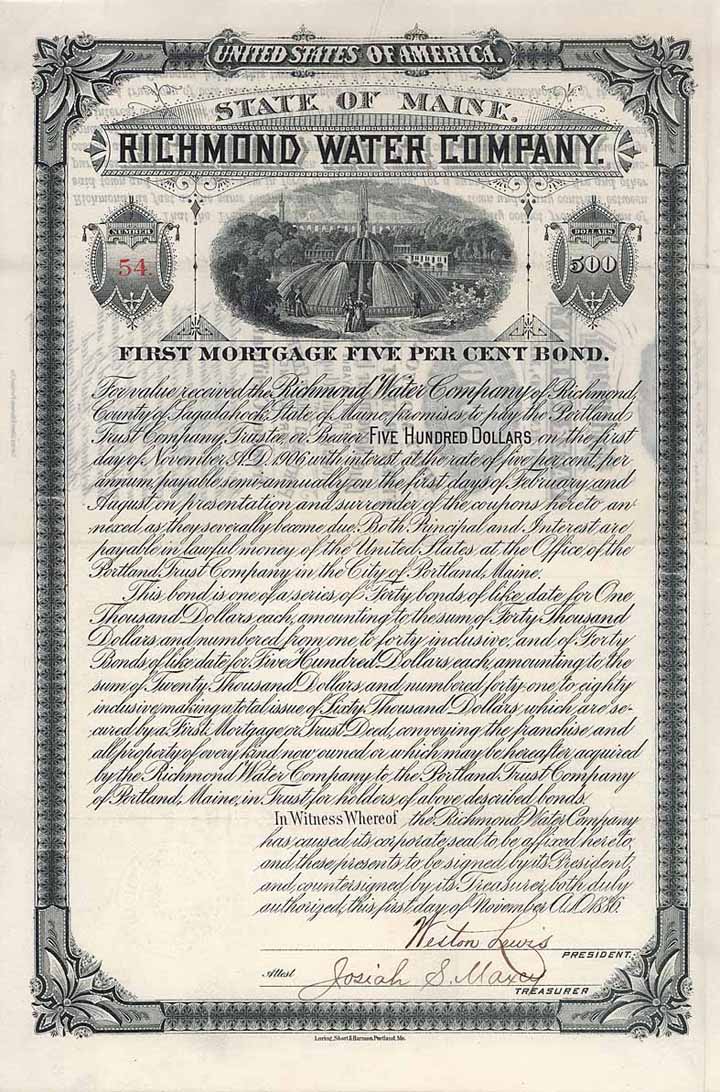 UNITED STATES OF AMERICA.
STATE OF MAINE.
RICHMOND WATER COMPANY.
NUMBER
54.
DOLLARS
500
FIRST MORTGAGE FIVE PER CENT BOND.
For value received the Richmond Water Company of Richmond,
County of Sagadahock, State of Maine, promises to pay the Portland
Trust Company, Trustee, or Bearer FIVE HUNDRED DOLLARS on the first
day of November A.D. 1906 with interest at the rate of five per cent, per
annum, payable semi-annually on the first days of February and
August on presentation and surrender of the coupons hereto an-
nexed as they severally become due. Both Principal and Interest are
payable in lawful money of the United States at the Office of the
Portland Trust Company in the City of Portland, Maine.
This bond is one of a series of Forty bonds of like date for One
Thousand Dollars each, amounting to the sum of Forty Thousand
Dollars and numbered from one to forty inclusive, and of Forty
Bonds of like date for Five Hundred Dollars each, amounting to the
sum of Twenty Thousand Dollars, and numbered forty-one to eighty
inclusive making a total issue of Sixty Thousand Dollars, which are se-
cured by a First Mortgage or Trust Deed, conveying the franchise and
all property of every kind now owned or which may be hereafter acquired
by the Richmond Water Company to the Portland Trust Company
of Portland, Maine, in Trust, for holders of above described bonds.
In Witness Whereof the Richmond Water Company
has caused its corporate seal to be affixed hereto,
and these presents to be signed by its President,
and countersigned by its Treasurer, both duly
authorized, this first day of November A.D. 1886.
Weston Lewis
PRESIDENT.
Attest Josiah S. Maxcy
TREASURER
Loring, Short & Harmon, Portland, Me.